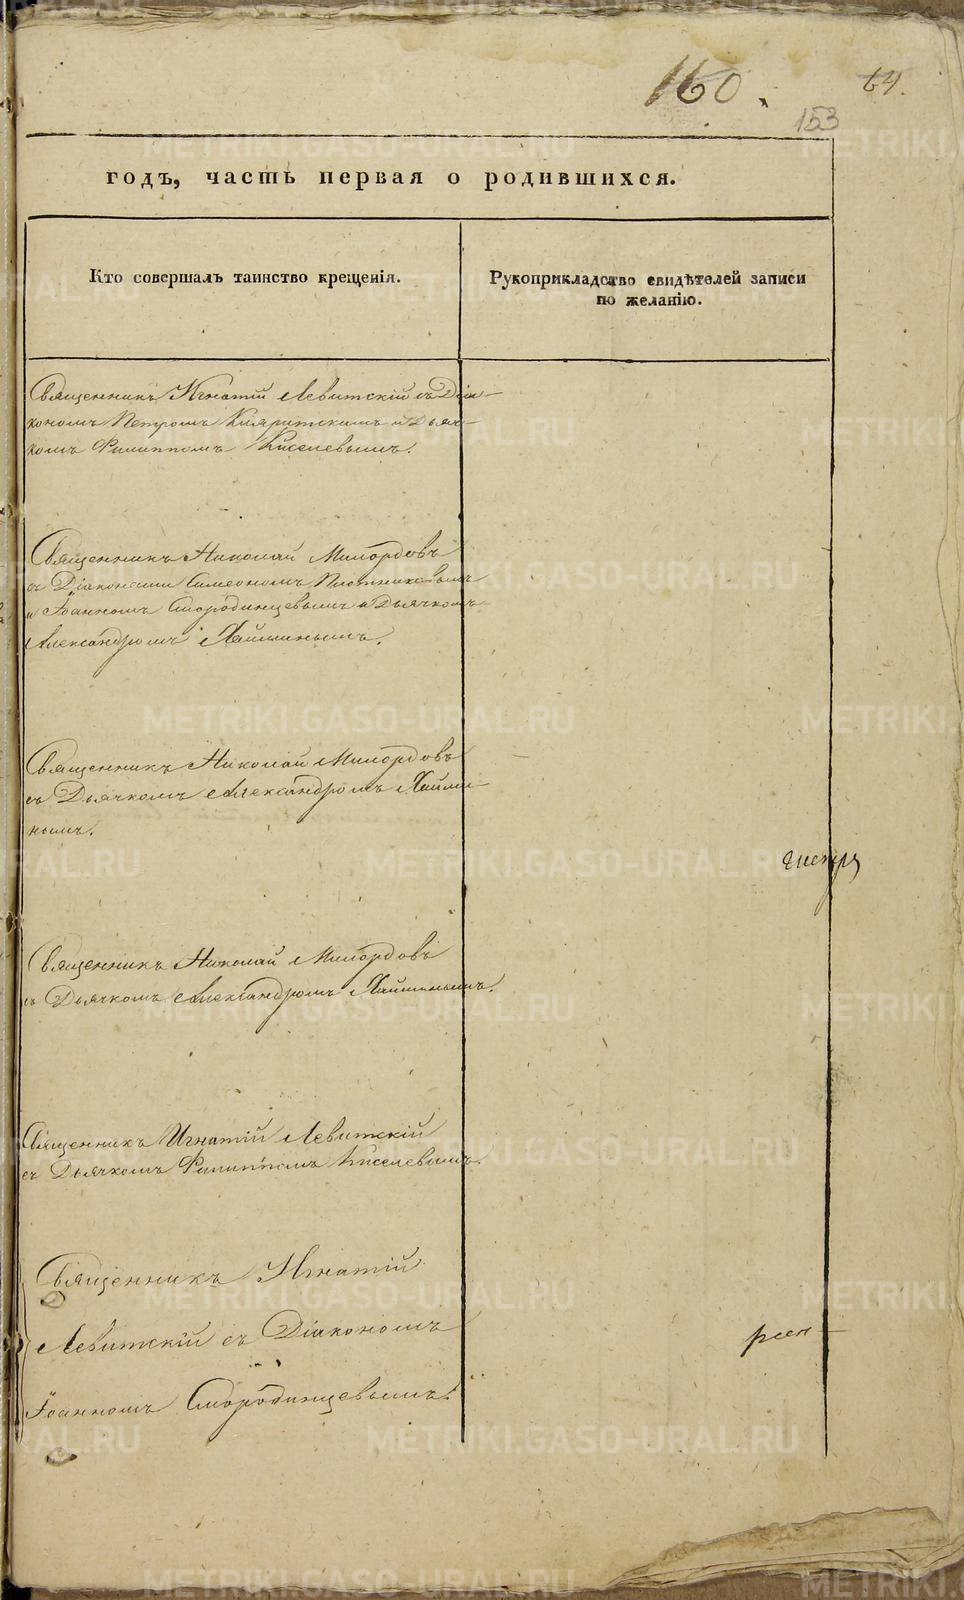 160.
64.
153
годъ, часть первая о родившихся.
Кто совершалъ таинство крещенія.
Рукоприкладство свидѣтелей записи
по желанію.
Священникъ Игнатій Левитскій съ Діа-
кономъ Петромъ и Дьяч-
комъ Филиппомъ Киселевымъ.
Священникъ Николай Милордовъ
съ Діаконами Симеономъ Плотниковымъ
и Іоанномъ Смородинцевымъ и Дьячкомъ
Александромъ Хайминымъ.
Священникъ Николай Милордовъ
съ Дьячкомъ Александромъ Хайми-
нымъ.
Священникъ Николай Милордовъ
съ Дьячкомъ Александромъ Хайминымъ.
Священникъ Игнатій Левитскій
съ Дьячкомъ Филиппомъ Киселевымъ.
Священникъ Игнатій
Левитскій съ Діакономъ
Іоанномъ Смородинцевымъ.
METRIKI.GASO-URAL.RU